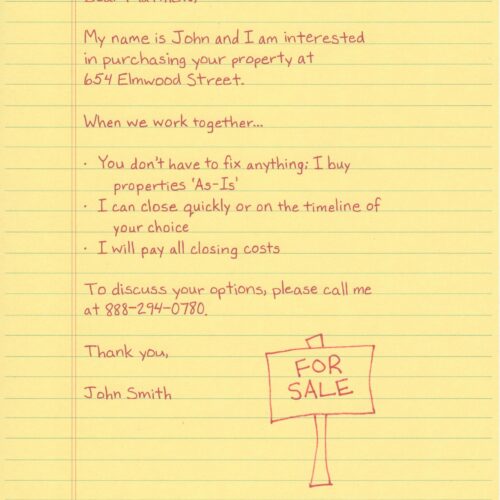 My name is John and I am interested
in purchasing your property at
654 Elmwood Street.
When we work together...
· You don't have to fix anything; I buy
properties 'As-Is'
· I can close quickly or on the timeline of
your choice
· I will pay all closing costs
To discuss your options, please call me
at 888-294-0780.
Thank you,
John Smith
FOR
SALE